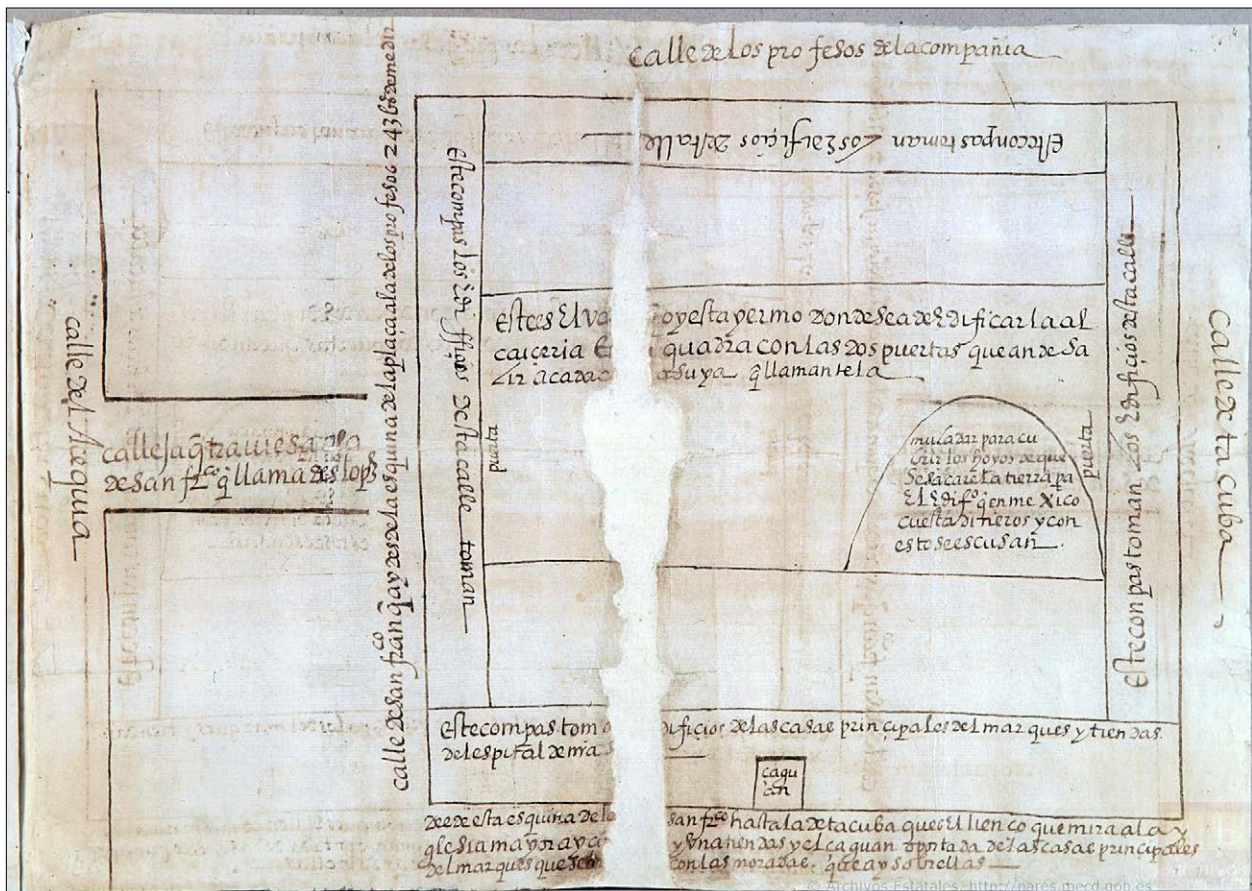 calle de los profesos de la compañia
Este conpas toman Los Edificios desta calle
calle del Acequia
calleja q̃ traviesa
de san fr.co q̃ llama de s lop̃s
calle de san fran.co q̃ ay desde la esquina de la plaça a la de los profesos 243 bs de medir
Este compas Los Edifficios desta calle toman
puerta
Este es El va oy esta yermo donde sea de Edificar la al
caiceria E quadra con las dos puertas que an de sa
lir a cada suya q̃ llaman tela
muladar para cu
brir los hoyos de que
se sacare la tierra pa
El Edif.o q̃ en mexico
cuesta dineros y con
esto se escusan
puerta
Este conpas toman Los Edificios desta calle
calle de tacuba
Este compas tom dificios de las casas principales del marques y tiendas
del espital de nr̃a s
cagu
an
desde esta esquina de la san fr.co hasta la de tacuba ques El lienço que mira a la y
glesia mayor ay y una tiendas y el çaguan portada de las casas principales
del marques que con las moradas que ay sobrellas
© Archivos Estatales, http://pares.mecd.gob.es
ARCHIVOS